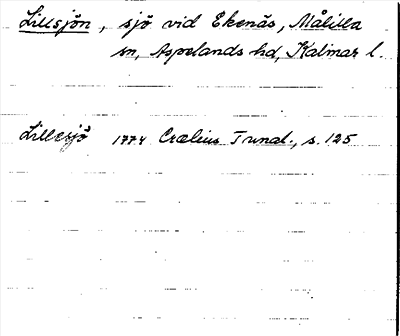 Lillsjön, sjö vid Ekenäs, Målilla
sn, Aspelands hd, Kalmar l.
Lillesjö 1774 Crælius Tunal., s. 125